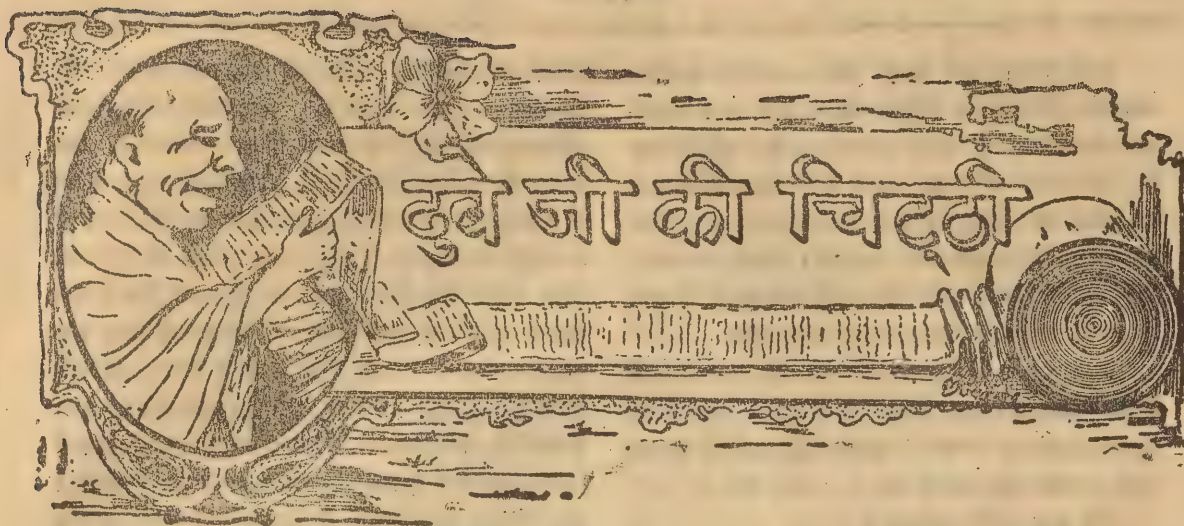 दुबे जी की चिट्ठी